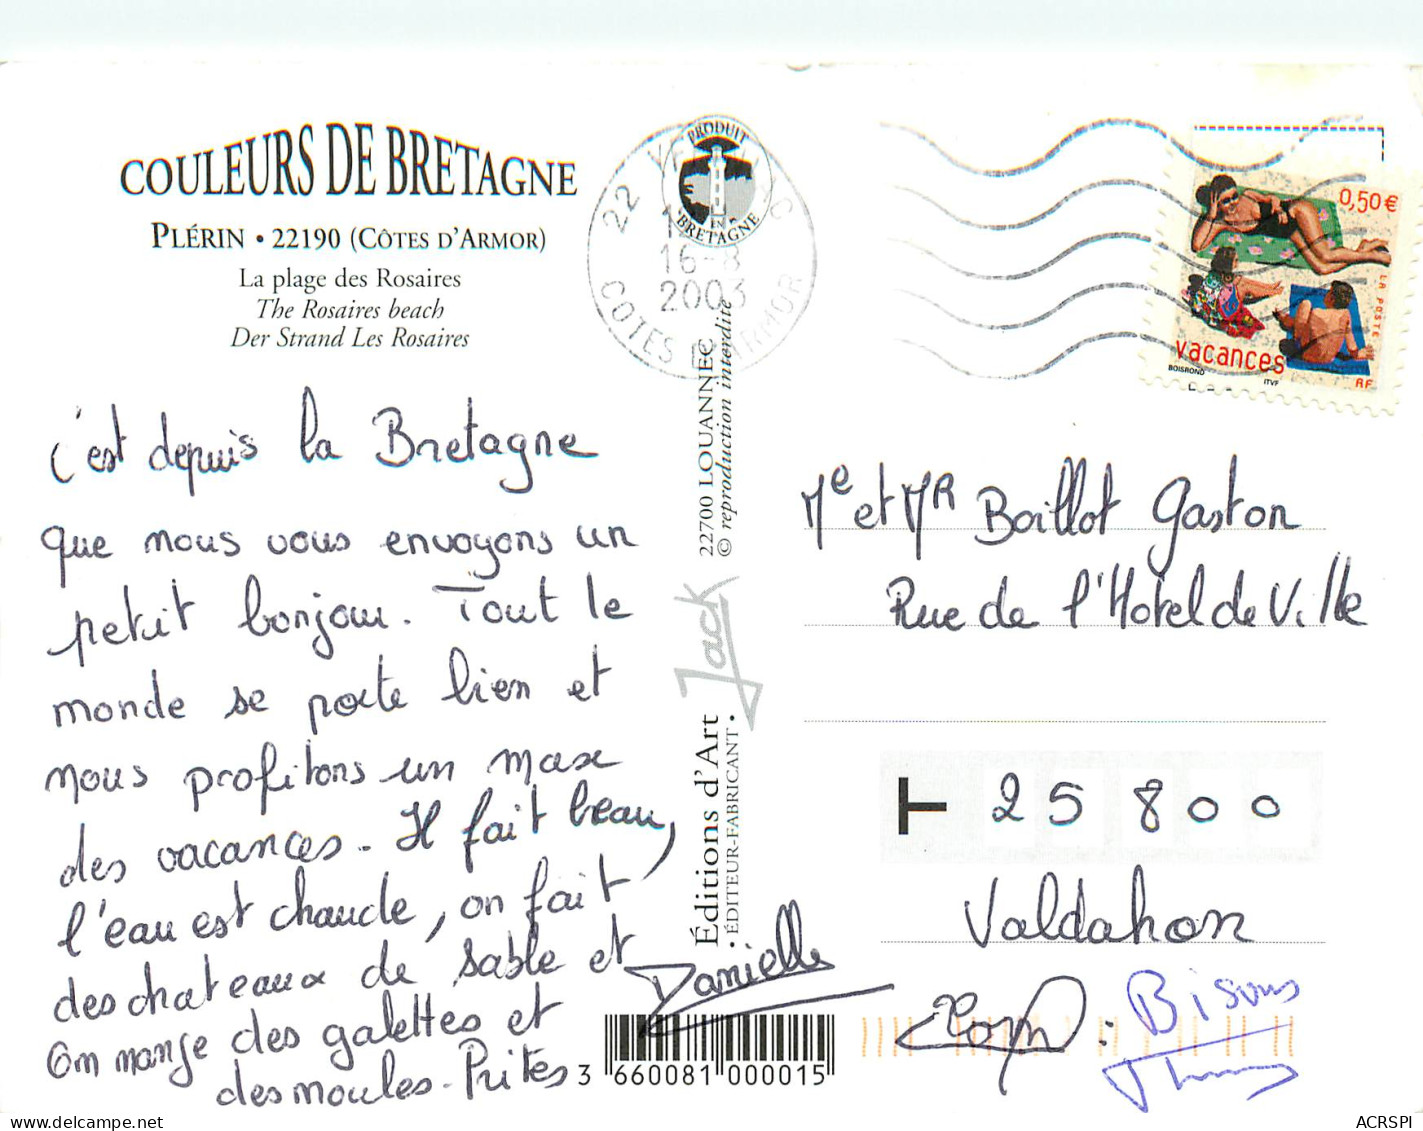 COULEURS DE BRETAGNE
PLÉRIN • 22190 (CÔTES D'ARMOR)
La plage des Rosaires
The Rosaires beach
Der Strand Les Rosaires
c'est depuis la Bretagne
que nous vous envoyons un
petit bonjour. Tout le
monde se porte bien et
nous profitons un max
des vacances. Il fait beau,
l'eau est chaude, on fait
des chateaux de sable et
On mange des galettes et
des moules-frites
Danielle
PRODUIT
EN
BRETAGNE
22
16-8
2003
COTES D'ARMOR
22700 LOUANNEC
© reproduction interdite
Jack
Éditions d'Art
• ÉDITEUR-FABRICANT •
3 660081 000015
0,50 €
LA POSTE
vacances
BOISROND
ITVF
RF
Me et MR Boillot Gaston
Rue de l'Hotel de Ville
T 25800
Valdahon
Bisous
ACRSPI